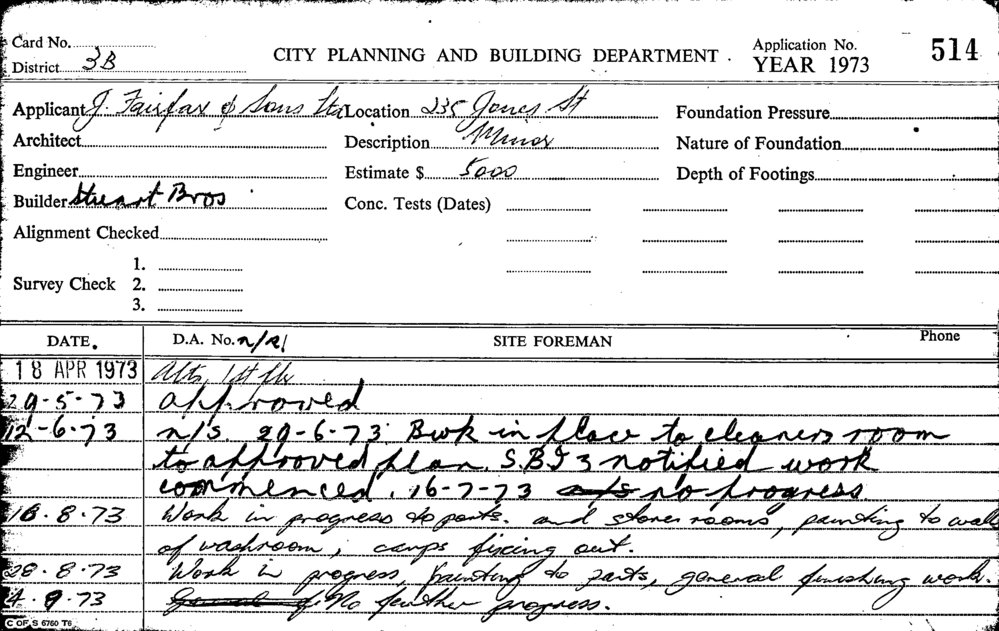 Card No.
District 3B
CITY PLANNING AND BUILDING DEPARTMENT.
Application No.
YEAR 1973
514
Applicant J. Fairfax & Sons Ltd Location 235 Jones St Foundation Pressure
Architect Description Minor Nature of Foundation
Engineer Estimate $ 5000 Depth of Footings
Builder Stuart Bros Conc. Tests (Dates)
Alignment Checked
1.
Survey Check 2.
3.
DATE. D.A. No. n/R/ SITE FOREMAN Phone
18 APR 1973 Alts, 1st flr
29-5-73 approved
12-6-73 n/s. 29-6-73 Bwk in place to cleaners room
to approved plan. S.B.I 3 notified work
commenced. 16-7-73 n/s no progress
16.8.73 Work in progress to parts. and stores rooms, painting to walls
of washroom, fixing out.
28.8.73 Work in progress, painting to parts, general finishing work.
4.9.73 General of No further progress.
C OF S 6760 T6